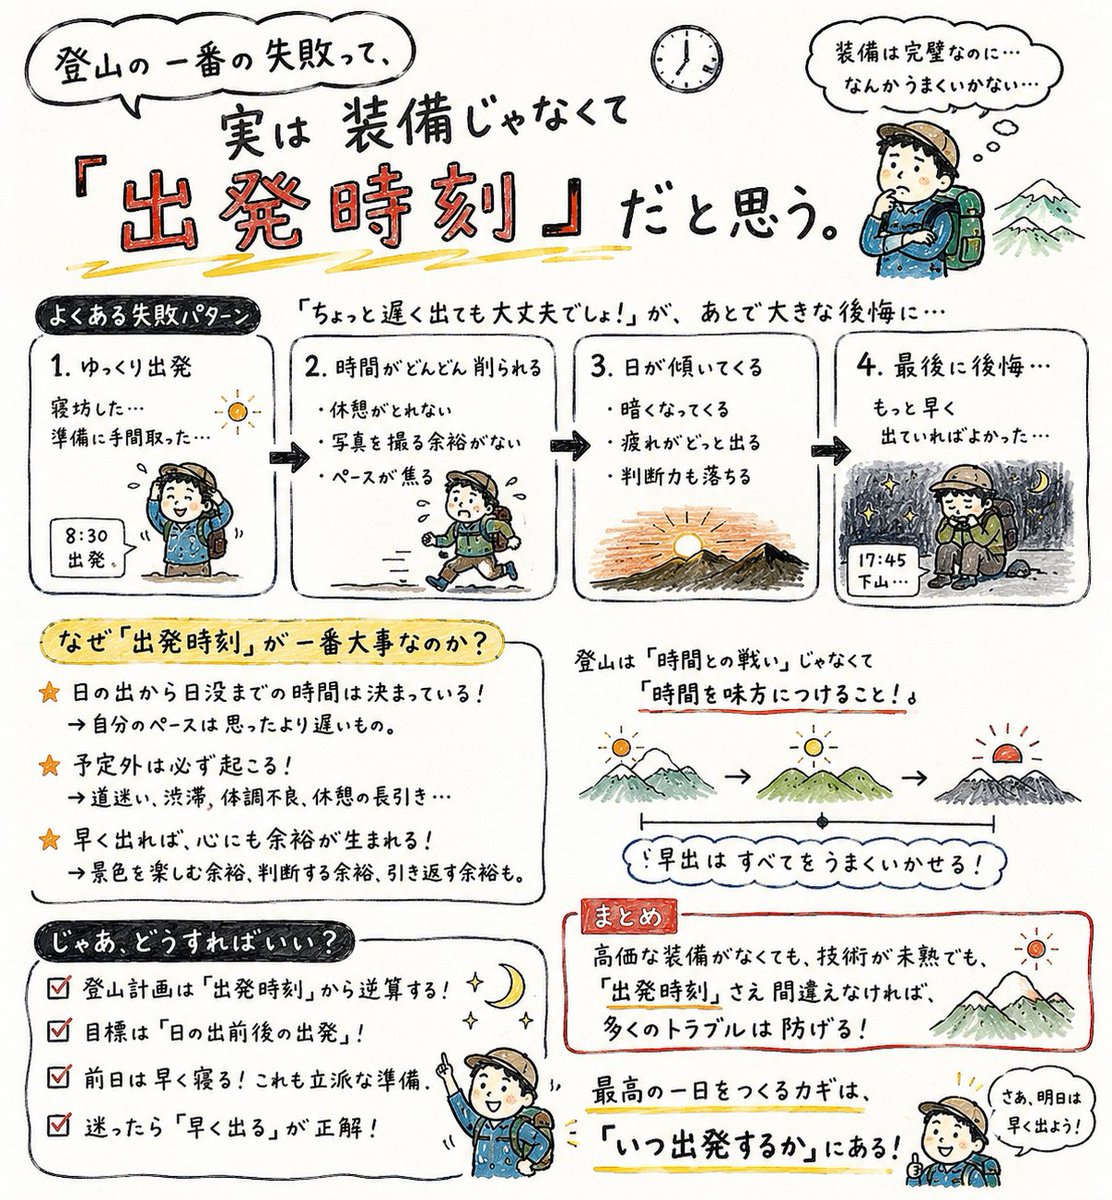 登山の一番の失敗って、
実は 装備じゃなくて
「出発時刻」だと思う。
装備は完璧なのに…
なんかうまくいかない…
よくある失敗パターン
「ちょっと遅く出ても大丈夫でしょ!」が、あとで大きな後悔に…
1. ゆっくり出発
寝坊した…
準備に手間取った…
8:30
出発。
2. 時間がどんどん削られる
・休憩がとれない
・写真を撮る余裕がない
・ペースが焦る
3. 日が傾いてくる
・暗くなってくる
・疲れがどっと出る
・判断力も落ちる
4. 最後に後悔…
もっと早く
出ていればよかった…
17:45
下山…
なぜ「出発時刻」が一番大事なのか?
★ 日の出から日没までの時間は決まっている!
→自分のペースは思ったより遅いもの。
★ 予定外は必ず起こる!
→道迷い、渋滞、体調不良、休憩の長引き…
★ 早く出れば、心にも余裕が生まれる!
→景色を楽しむ余裕、判断する余裕、引き返す余裕も。
登山は「時間との戦い」じゃなくて
「時間を味方につけること!」。
→ →
早出はすべてをうまくいかせる!
じゃあ、どうすればいい?
☑ 登山計画は「出発時刻」から逆算する!
☑ 目標は「日の出前後の出発」!
☑ 前日は早く寝る!これも立派な準備.
☑ 迷ったら「早く出る」が正解!
まとめ
高価な装備がなくても、技術が未熟でも、
「出発時刻」さえ間違えなければ、
多くのトラブルは防げる!
最高の一日をつくるカギは、
「いつ出発するか」にある!
さあ、明日は
早く出よう!